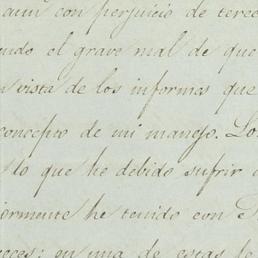 aun con perjuicio de terce
uido el grave mal de que
n vista de los informes que
concepto de mi manejo. Lo
sto que he debido sufrir
iormente he tenido con
veces: en una de estas